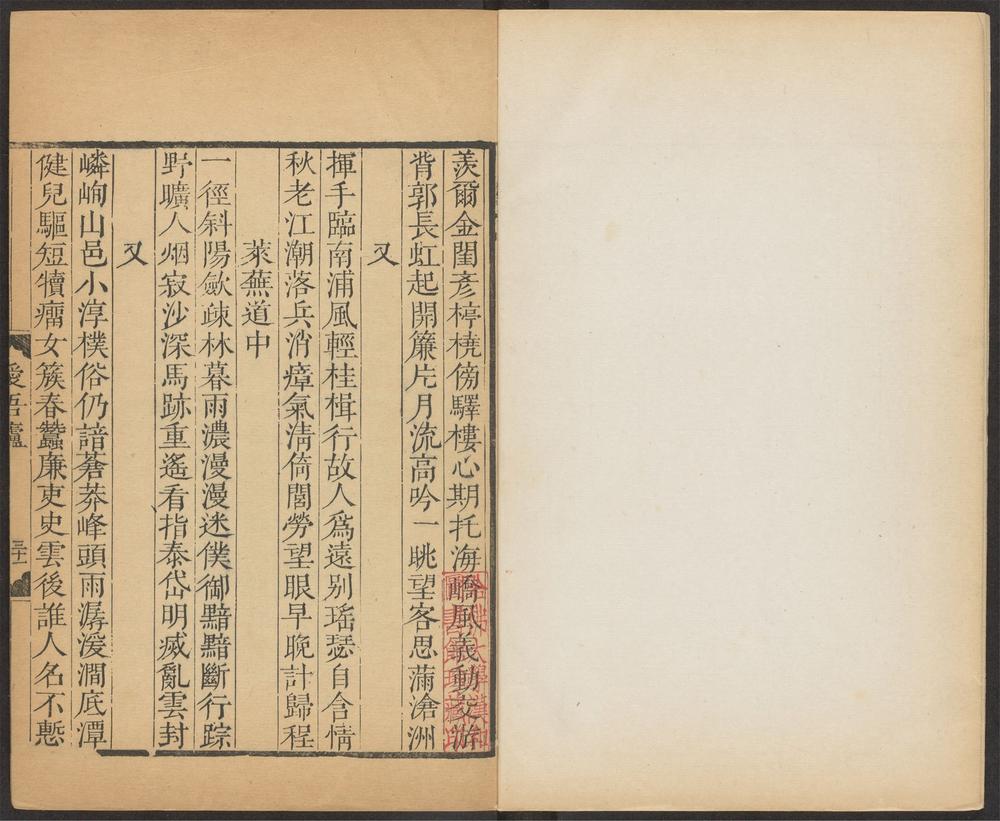 羨爾金閨彥停橈傍驛樓心期托海嶠風義動交游
背郭長虹起開簾片月流高吟一眺望客思滿滄洲
又
揮手臨南浦風輕桂楫行故人爲遠别瑤瑟自含情
秋老江潮落兵消瘴氣清倚閣勞望眼早晚計歸程
萊蕪道中
一徑斜陽歛疎林暮雨濃漫漫迷僕御黯黯斷行踪
野曠人烟寂沙深馬跡重遙看指泰岱明滅亂雲封
又
嶙峋山邑小淳樸俗仍諳蒼莽峰頭雨潺湲澗底潭
健兒驅短犢癅女簇春蠶廉吏史雲後誰人名不慙
愛吾廬
三十一
哈佛大學漢和圖書館珍藏印